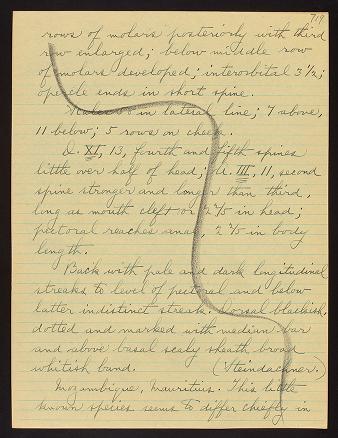 719
rows of molars posteriorly with third
row enlarged; below middle row
of molars developed; interorbital 3½;
opercle ends in short spine.
Scales 48 in lateral line; 7 above,
11 below; 5 rows on cheek.
D. XI, 13, fourth and fifth spines
little over half of head; A. III, 11, second
spine stronger and longer than third,
long as mouth cleft or 2⅖ in head;
pectoral reaches anal, 2⅘ in body
length.
Back with pale and dark longitudinal
streaks to level of pectoral and below
latter indistinct streak. Dorsal blackish,
dotted and marked with median bar
and above basal scaly sheath broad
whitish band. (Steindachner.)
Mozambique, Mauritius. This little
known species seems to differ chiefly in